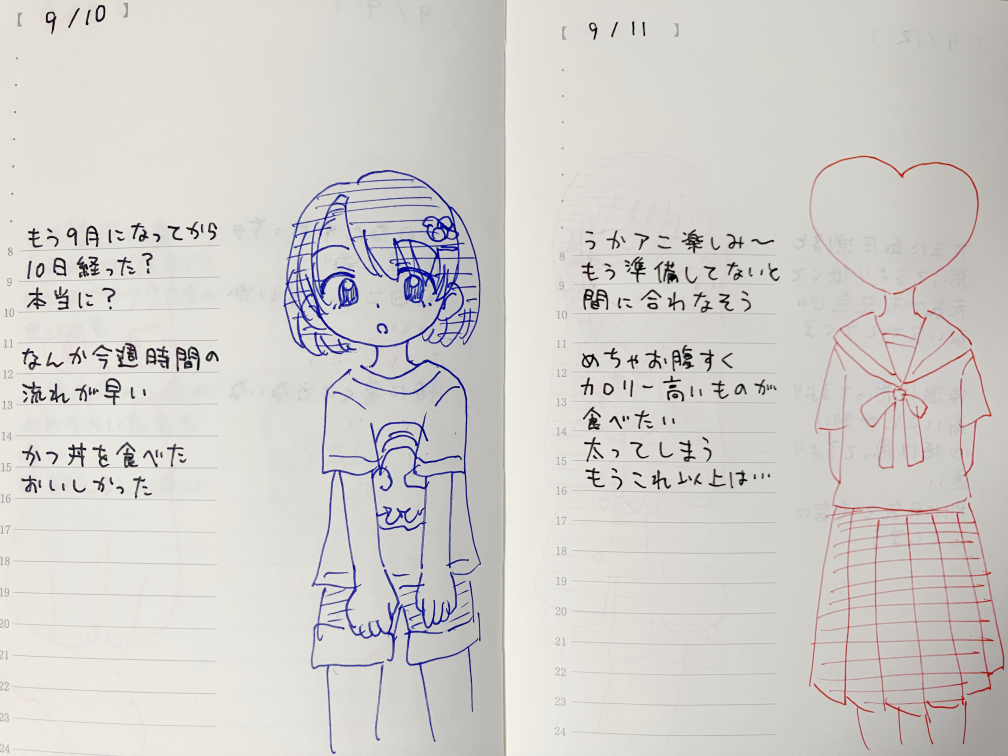 【 9/10 】
もう9月になってから
10日経った?
本当に?
なんか今週時間の
流れが早い
かつ丼を食べた
おいしかった
8
9
10
11
12
13
14
15
16
17
18
19
20
21
22
23
24
【 9/11 】
うかアニ楽しみ〜
もう準備してないと
間に合わなそう
めちゃお腹すく
カロリー高いものが
食べたい
太ってしまう
もうこれ以上は…
8
9
10
11
12
13
14
15
16
17
18
19
20
21
22
23
24